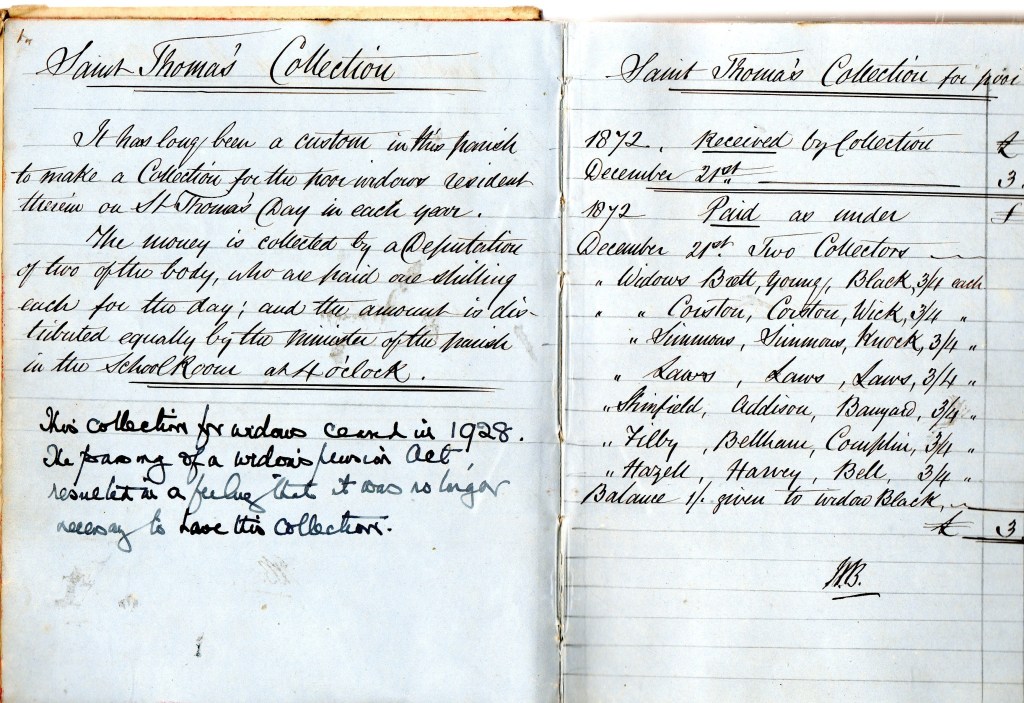 1
Saint Thomas's Collection
It has long been a custom in this parish
to make a Collection for the poor widows resident
therein on St Thomas' Day in each year.
The money is collected by a Deputation
of two of the body, who are paid one shilling
each for the day; and the amount is dis-
tributed equally by the minister of the parish
in the School Room at 4 o'clock.
This collection for widows ceased in 1928.
The passing of a widow's pension Act,
resulted in a feeling that it was no longer
necessary to have this collection.
Saint Thomas's Collection for poor
1872. Received by Collection £
December 21st. 3.
1872 Paid as under £
December 21st. Two Collectors
" Widows Brett, Young, Black, 3/4 each
" " Corston, Corston, Wick, 3/4 "
" Simmons, Simmons, Knock, 3/4 "
" Laws, Laws, Laws, 3/4 "
" Shinfield, Addison, Banyard, 3/4 "
" Filby, Bellham, Complin, 3/4 "
" Hazell, Harvey, Bell, 3/4 "
Balance 1/- given to widow Black,
£ 3